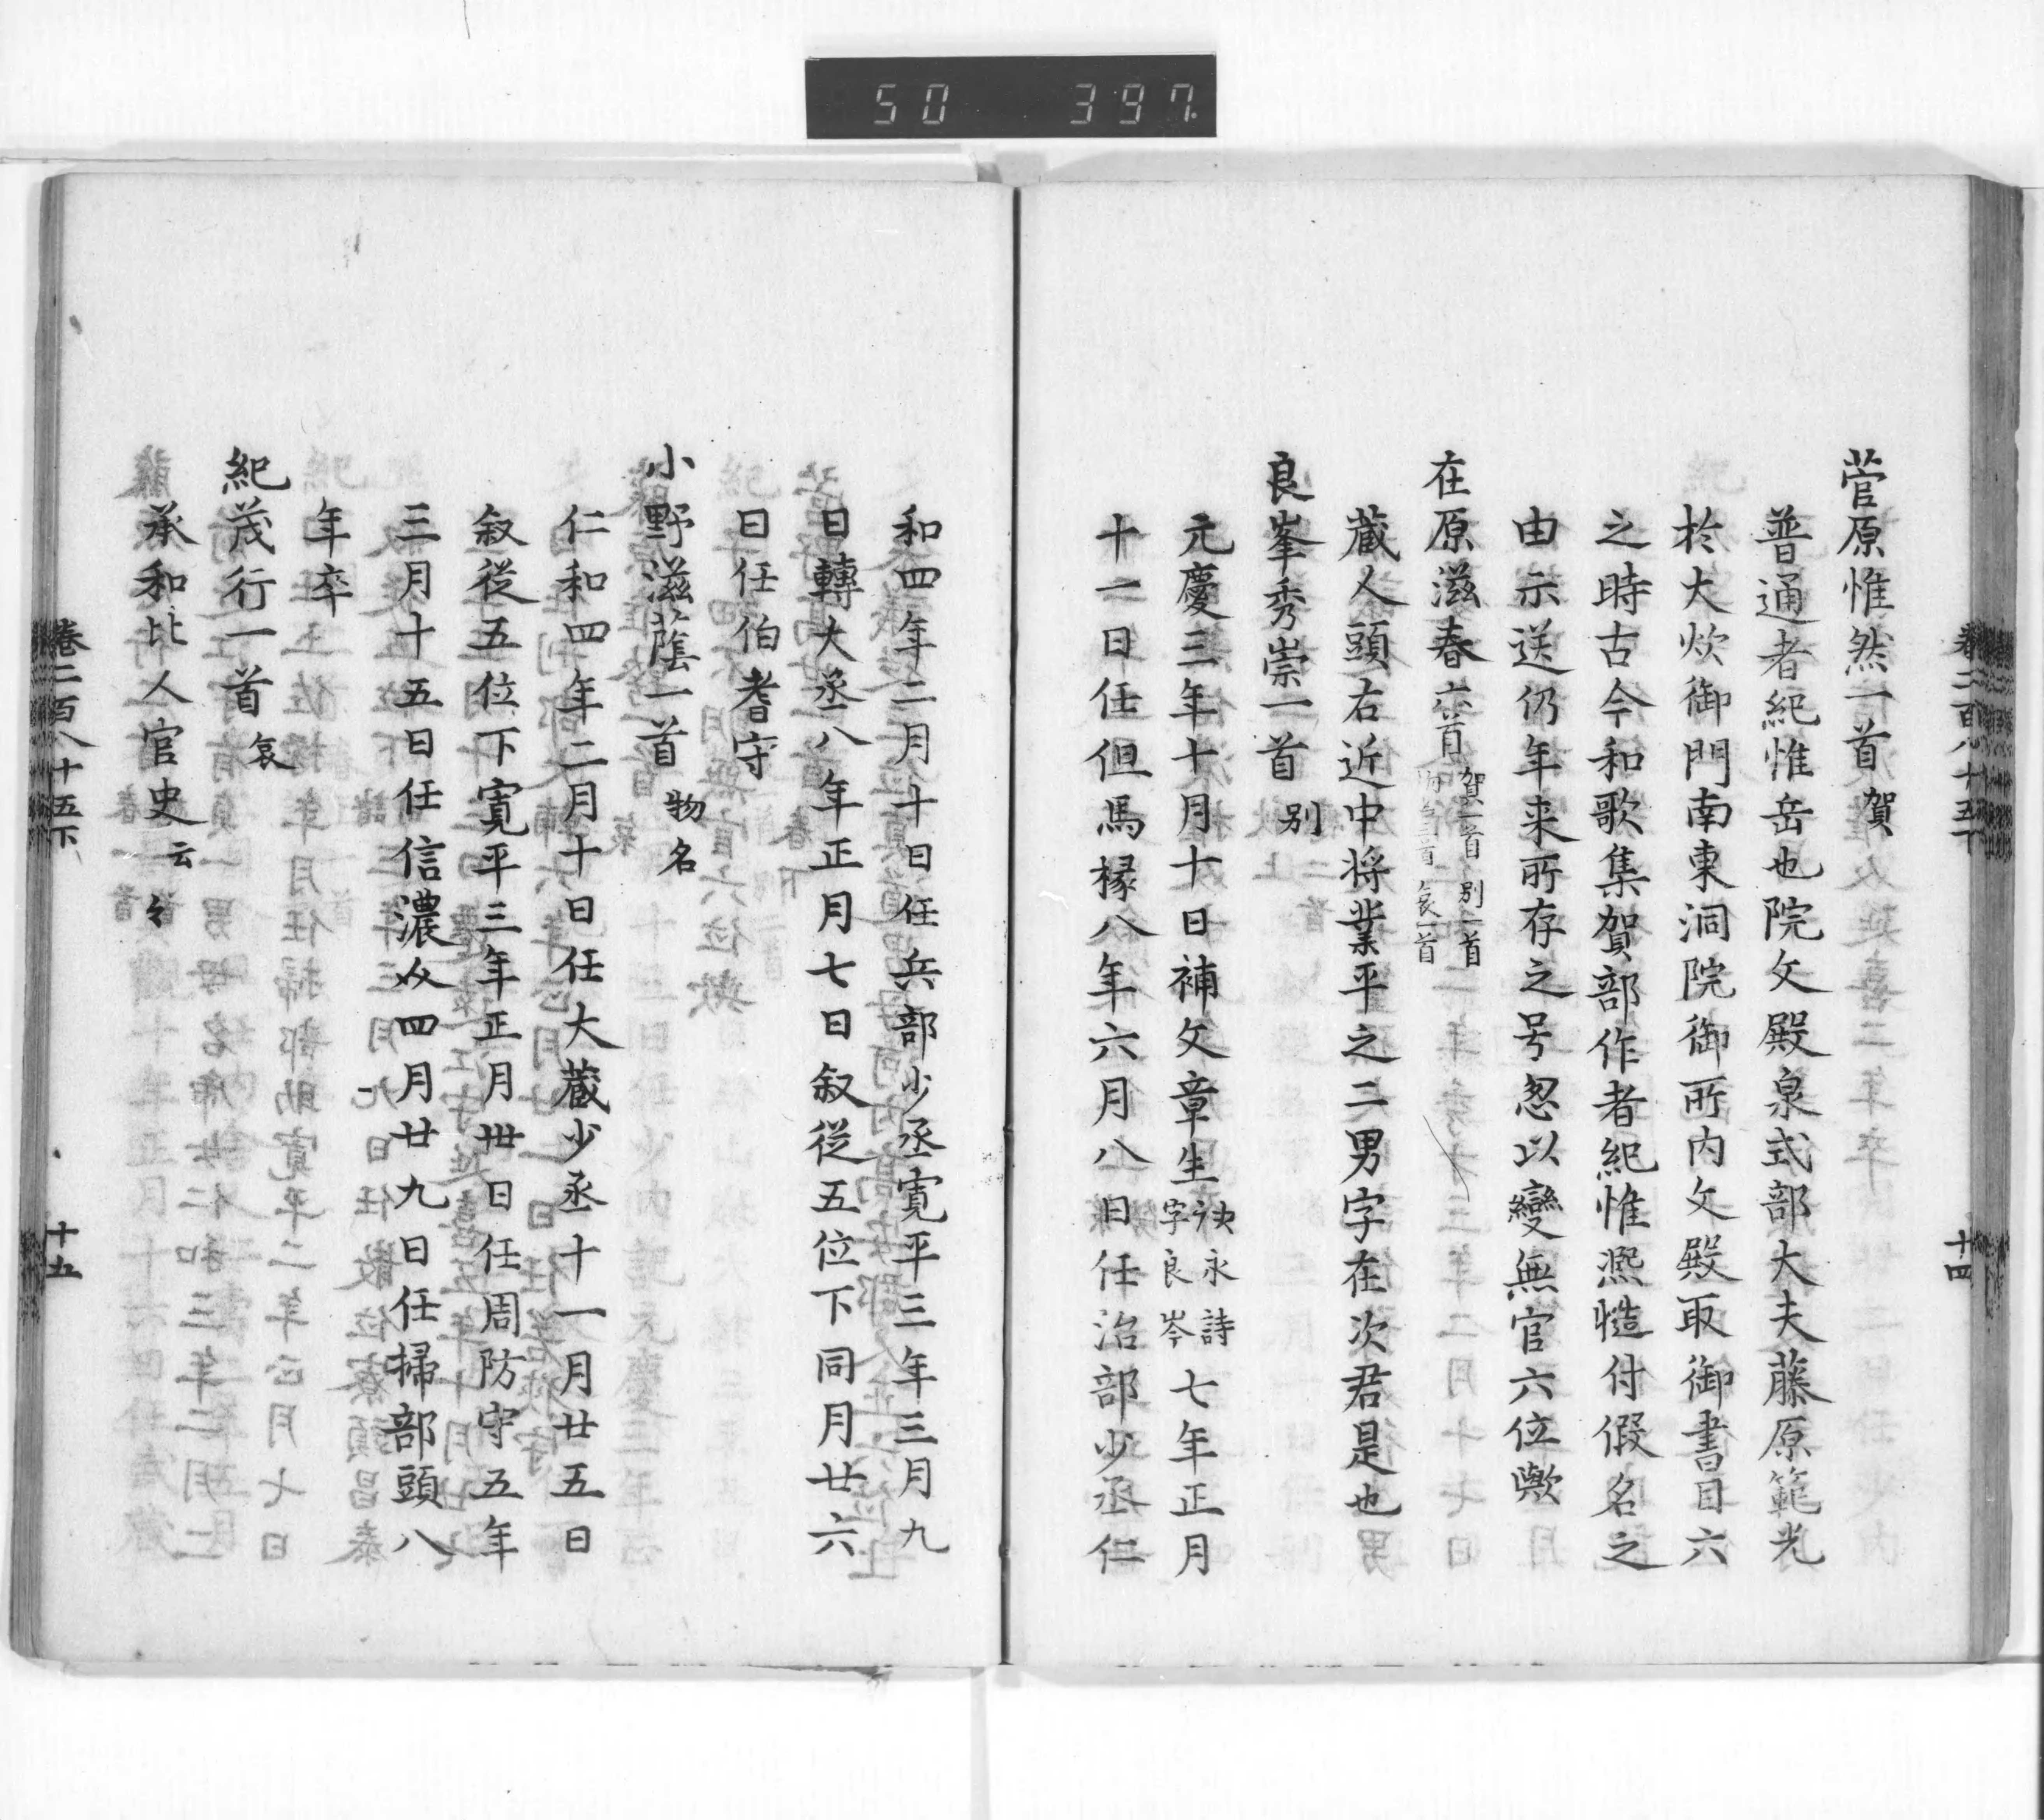 50 397
卷二百八十五下
十四
菅原惟然一首 賀
普通者紀惟岳也院文殿泉式部大夫藤原範光
於大炊御門南東洞院御所内文殿取御書目六
之時古今和歌集賀部作者紀惟凞慥付假名之
由示送仍年来所存之号忽以變無官六位歟
在原滋春六首 賀一首 別一首
物名三首 哀一首
蔵人頭右近中将業平之二男字在次君是也
良峯秀崇一首 別
元慶三年十月十日補文章生 永詩
字良岑 七年正月
十一日任但馬掾八年六月八日任治部少丞仁
和四年二月十日任兵部少丞寛平三年三月九
日轉大丞八年正月七日叙従五位下同月廿六
日任伯耆守
小野滋蔭一首 物名
仁和四年二月十日任大蔵少丞十一月廿五日
叙従五位下寛平三年正月卅日任周防守五年
三月十五日任信濃介四月廿九日任掃部頭八
年卒
紀茂行一首 哀
承和比人官史云々
卷二百八十五下
十五